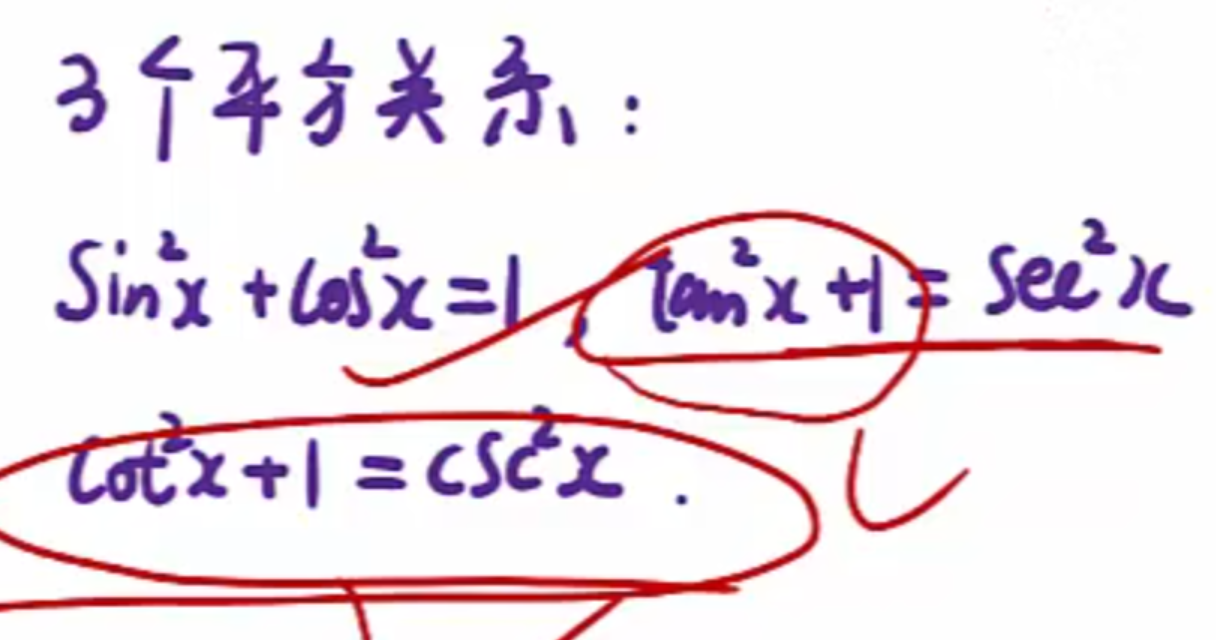 3个平方关系:
Sin²x + Cos²x = 1, tan²x + 1 = Sec²x
Cot²x + 1 = CSC²x.